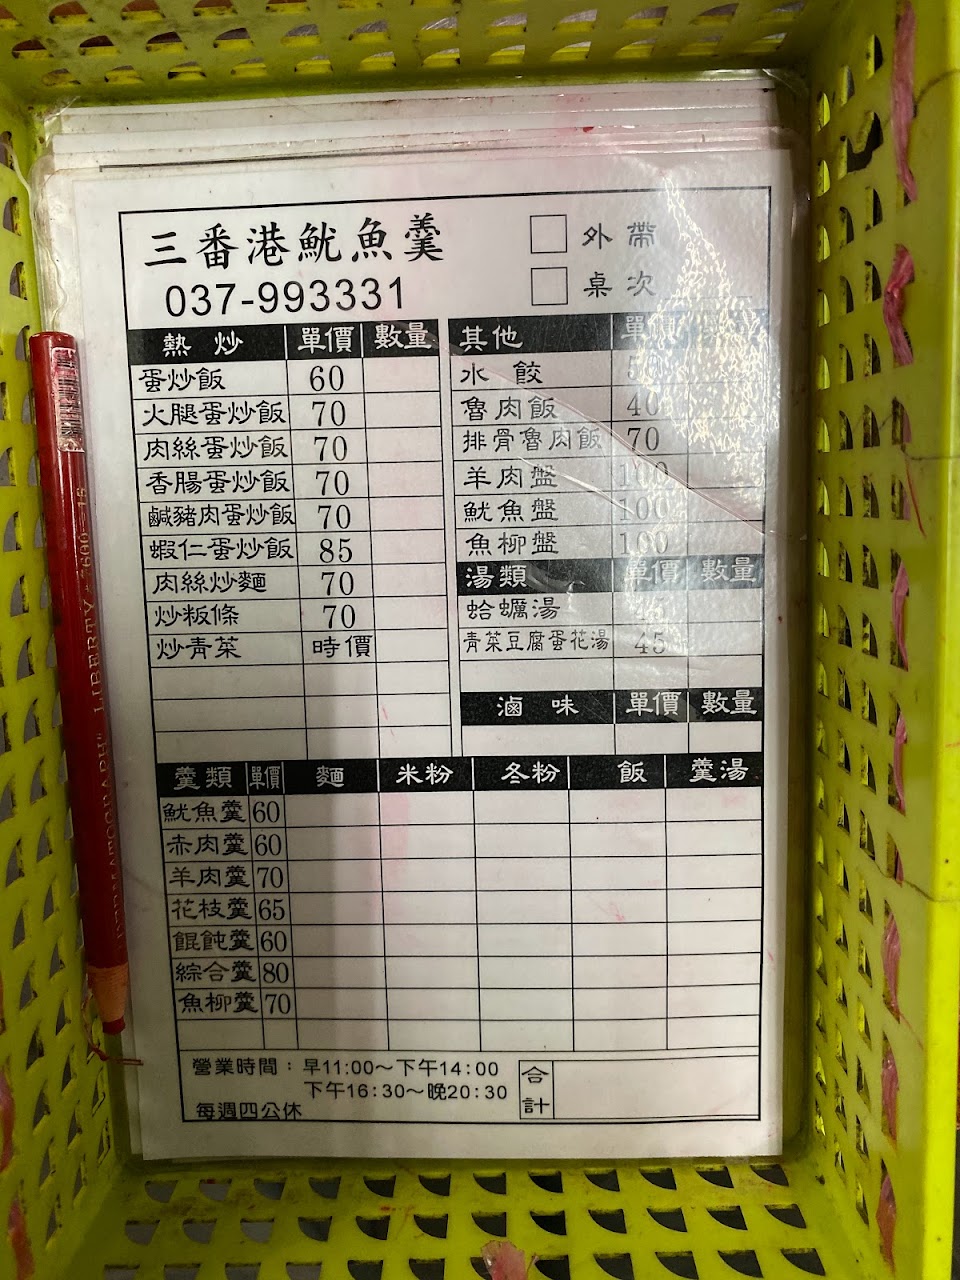 三番港魷魚羹
037-993331
外帶
桌次
熱炒 單價 數量
蛋炒飯 60
火腿蛋炒飯 70
肉絲蛋炒飯 70
香腸蛋炒飯 70
鹹豬肉蛋炒飯 70
蝦仁蛋炒飯 85
肉絲炒麵 70
炒粄條 70
炒青菜 時價
其他 單價
水餃
魯肉飯 40
排骨魯肉飯 70
羊肉盤 100
魷魚盤 100
魚柳盤 100
湯類 單價 數量
蛤蠣湯 45
青菜豆腐蛋花湯 45
滷味 單價 數量
羹類 單價 麵 米粉 冬粉 飯 羹湯
魷魚羹 60
赤肉羹 60
羊肉羹 70
花枝羹 65
餛飩羹 60
綜合羹 80
魚柳羹 70
營業時間：早11:00～下午14:00
下午16:30～晚20:30
每週四公休
合計
LIBERTY